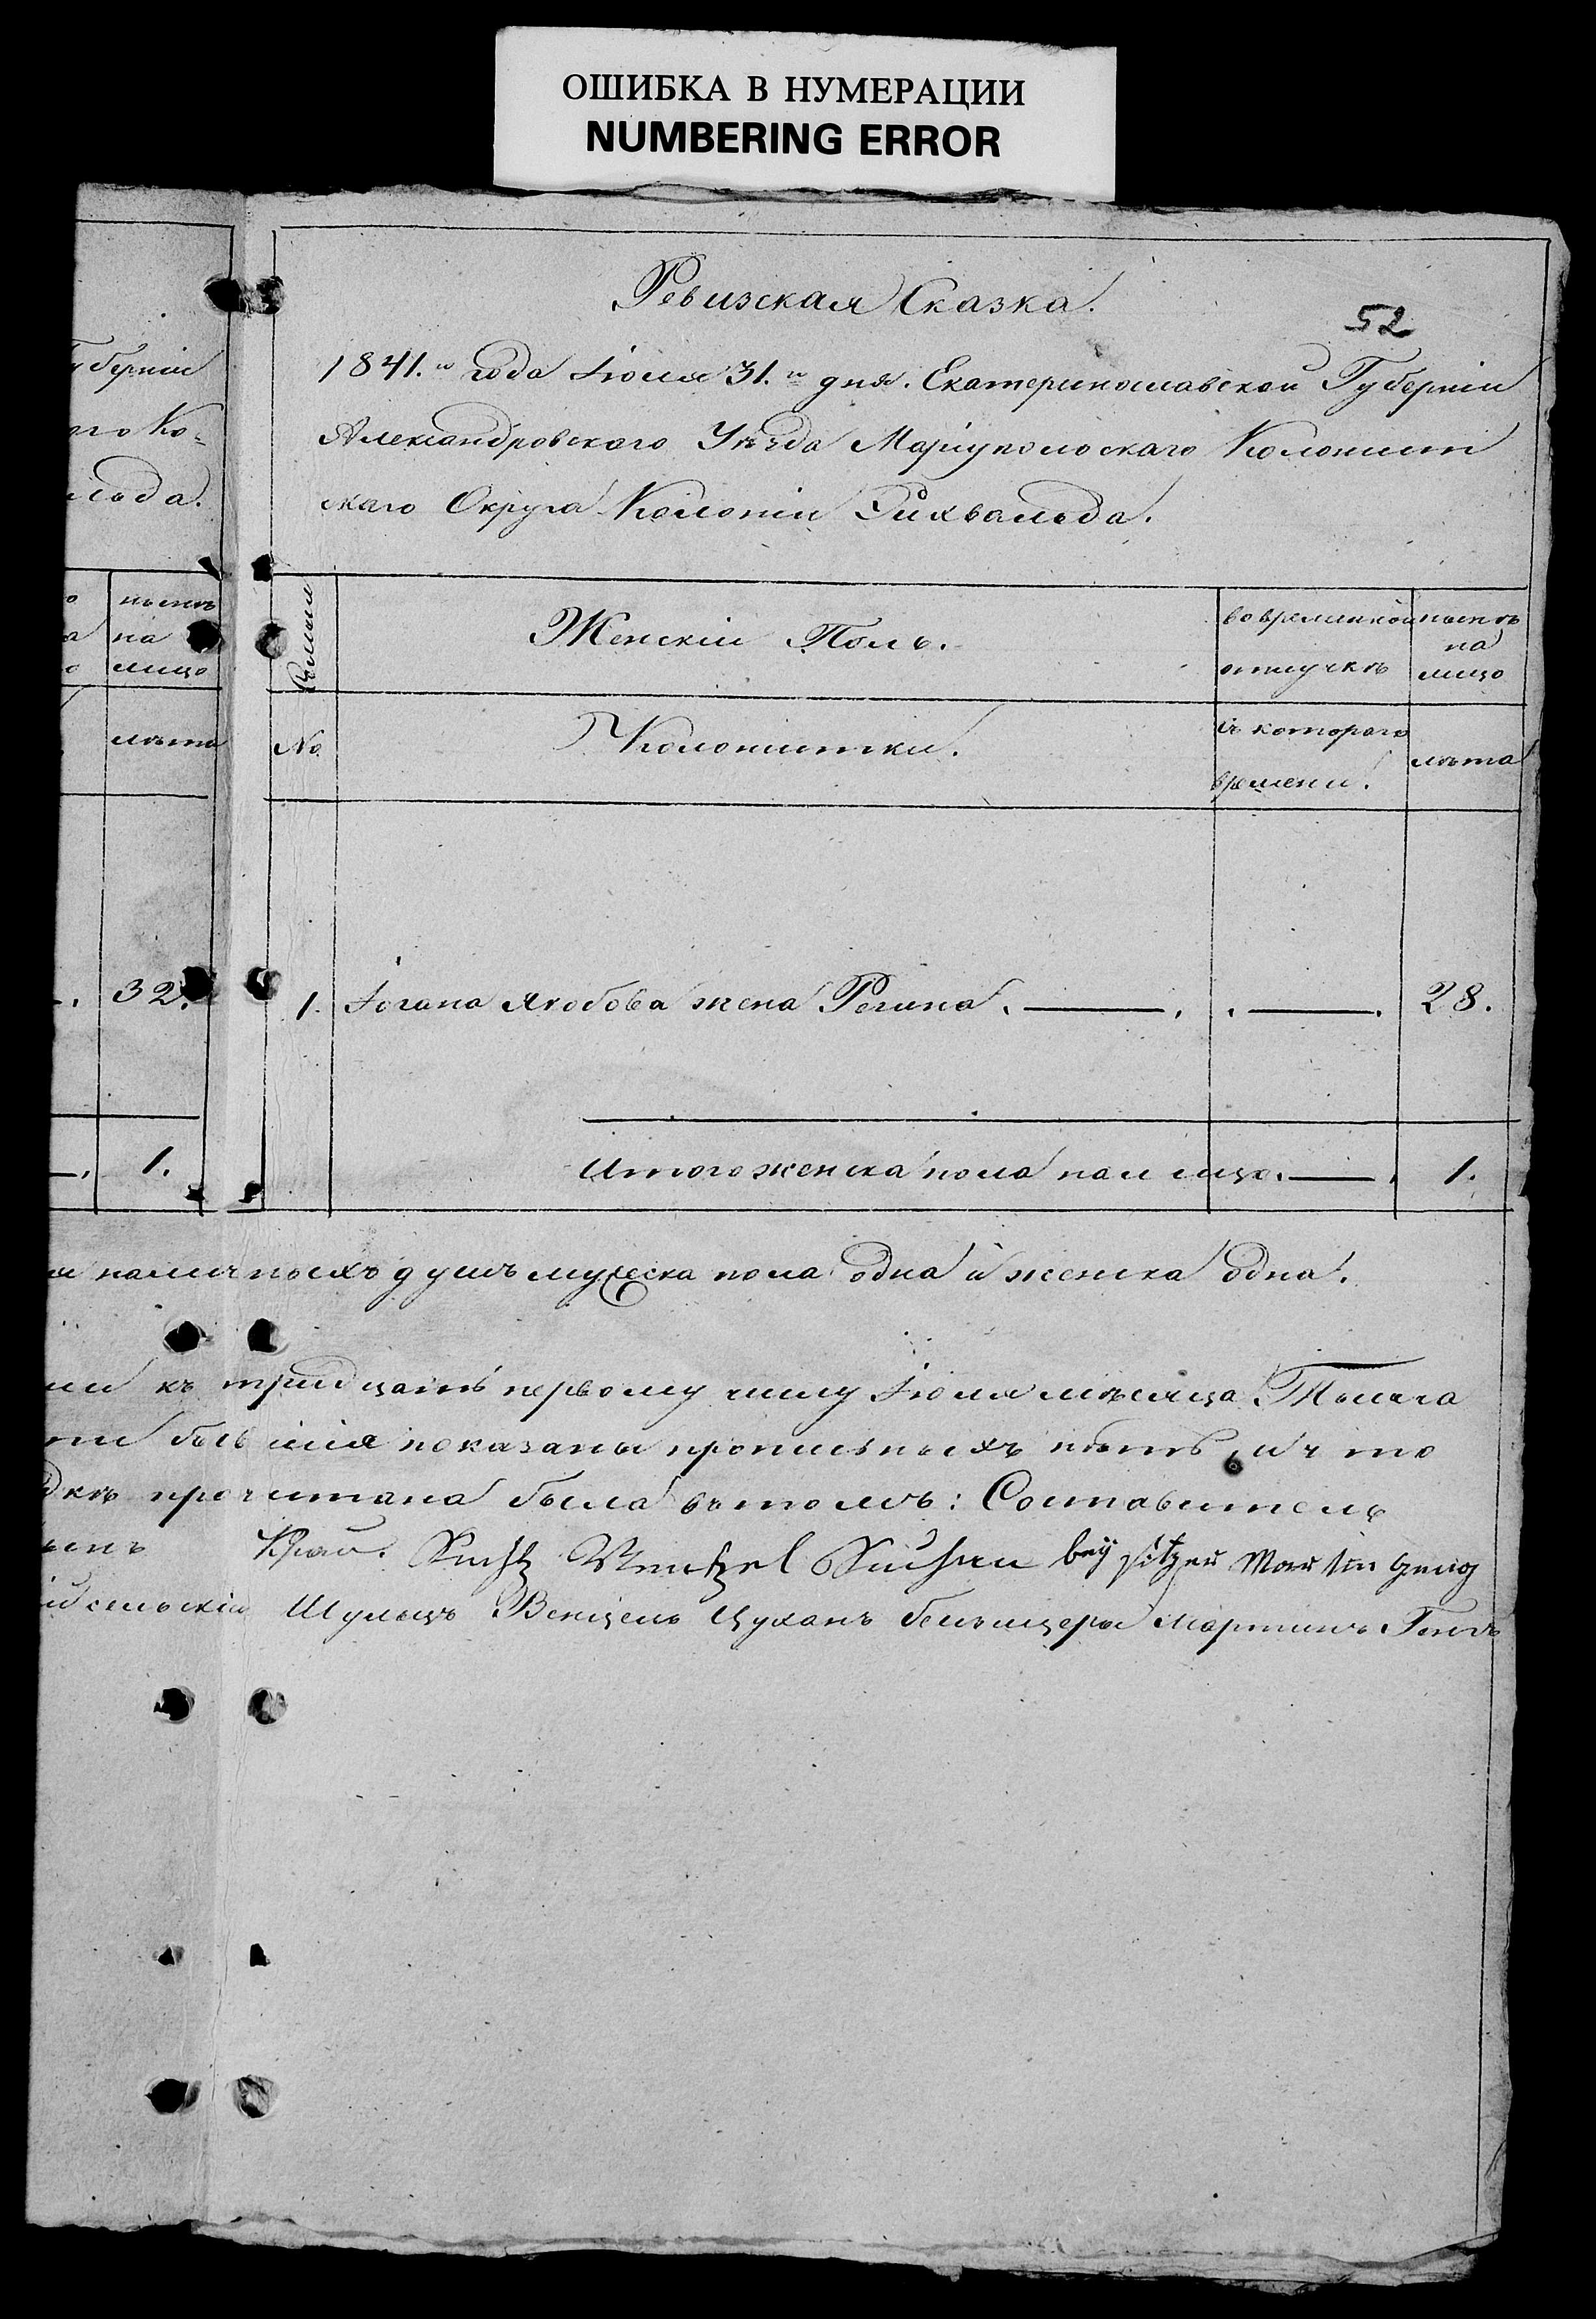 ОШИБКА В НУМЕРАЦИИ
NUMBERING ERROR
Ревизская Сказка.
52
1841.го года Іюля 31.го дня. Екатеринославской Губерніи
Александровскаго Уѣзда Маріупольскаго Колонист
скаго Округа Колоніи Рихвальда.
уберніи
аго Ко-
льда.
нынѣ
на
лицо
лѣта
32.
1.
Фамилія
Женскій Полъ.
во временной
отлучкѣ
нынѣ
на
лицо
No
Колонистки.
съ котораго
времени.
лѣта
1. Іогана Якобова жена Регина. 28.
Итого женска пола на лицо. 1.
я наличныхъ душъ мужеска пола одна и женска одна.
къ тридцать первому числу Іюля мѣсяца Тысяча
показаны прописныхъ нѣтъ, и что
прочитана была въ томъ: Составитель
Край. Schultz Wentzel Zuchan beysitzer Martin Geng
сельскій Шульцъ Венцель Цуханъ бейзицеры Мартинъ Генгъ